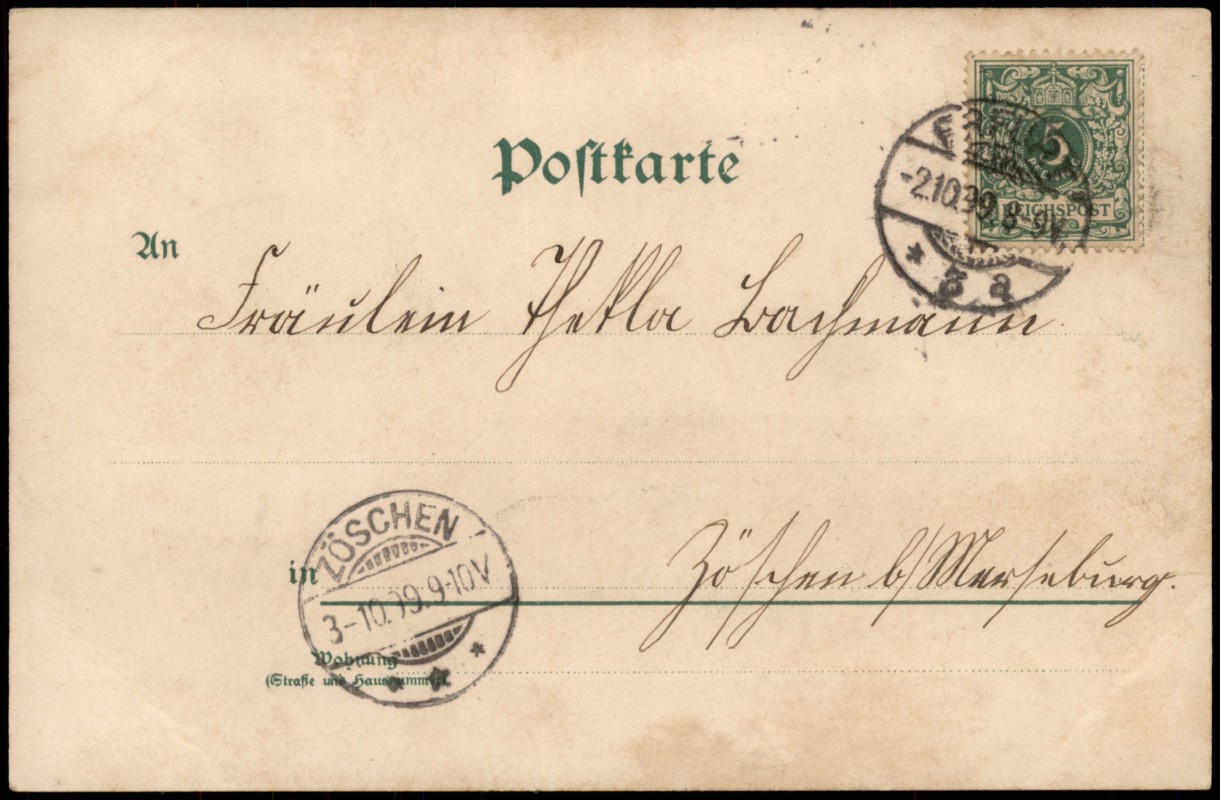 Postkarte
5
REICHSPOST
ERFURT
-2.10.99.8-9V.
* 5 a
An
Fräulein Thekla Bachmann
ZÖSCHEN
3-10.99.9-10V
* * *
in
Zöschen b/Merseburg.
Wohnung
(Straße und Hausnummer)